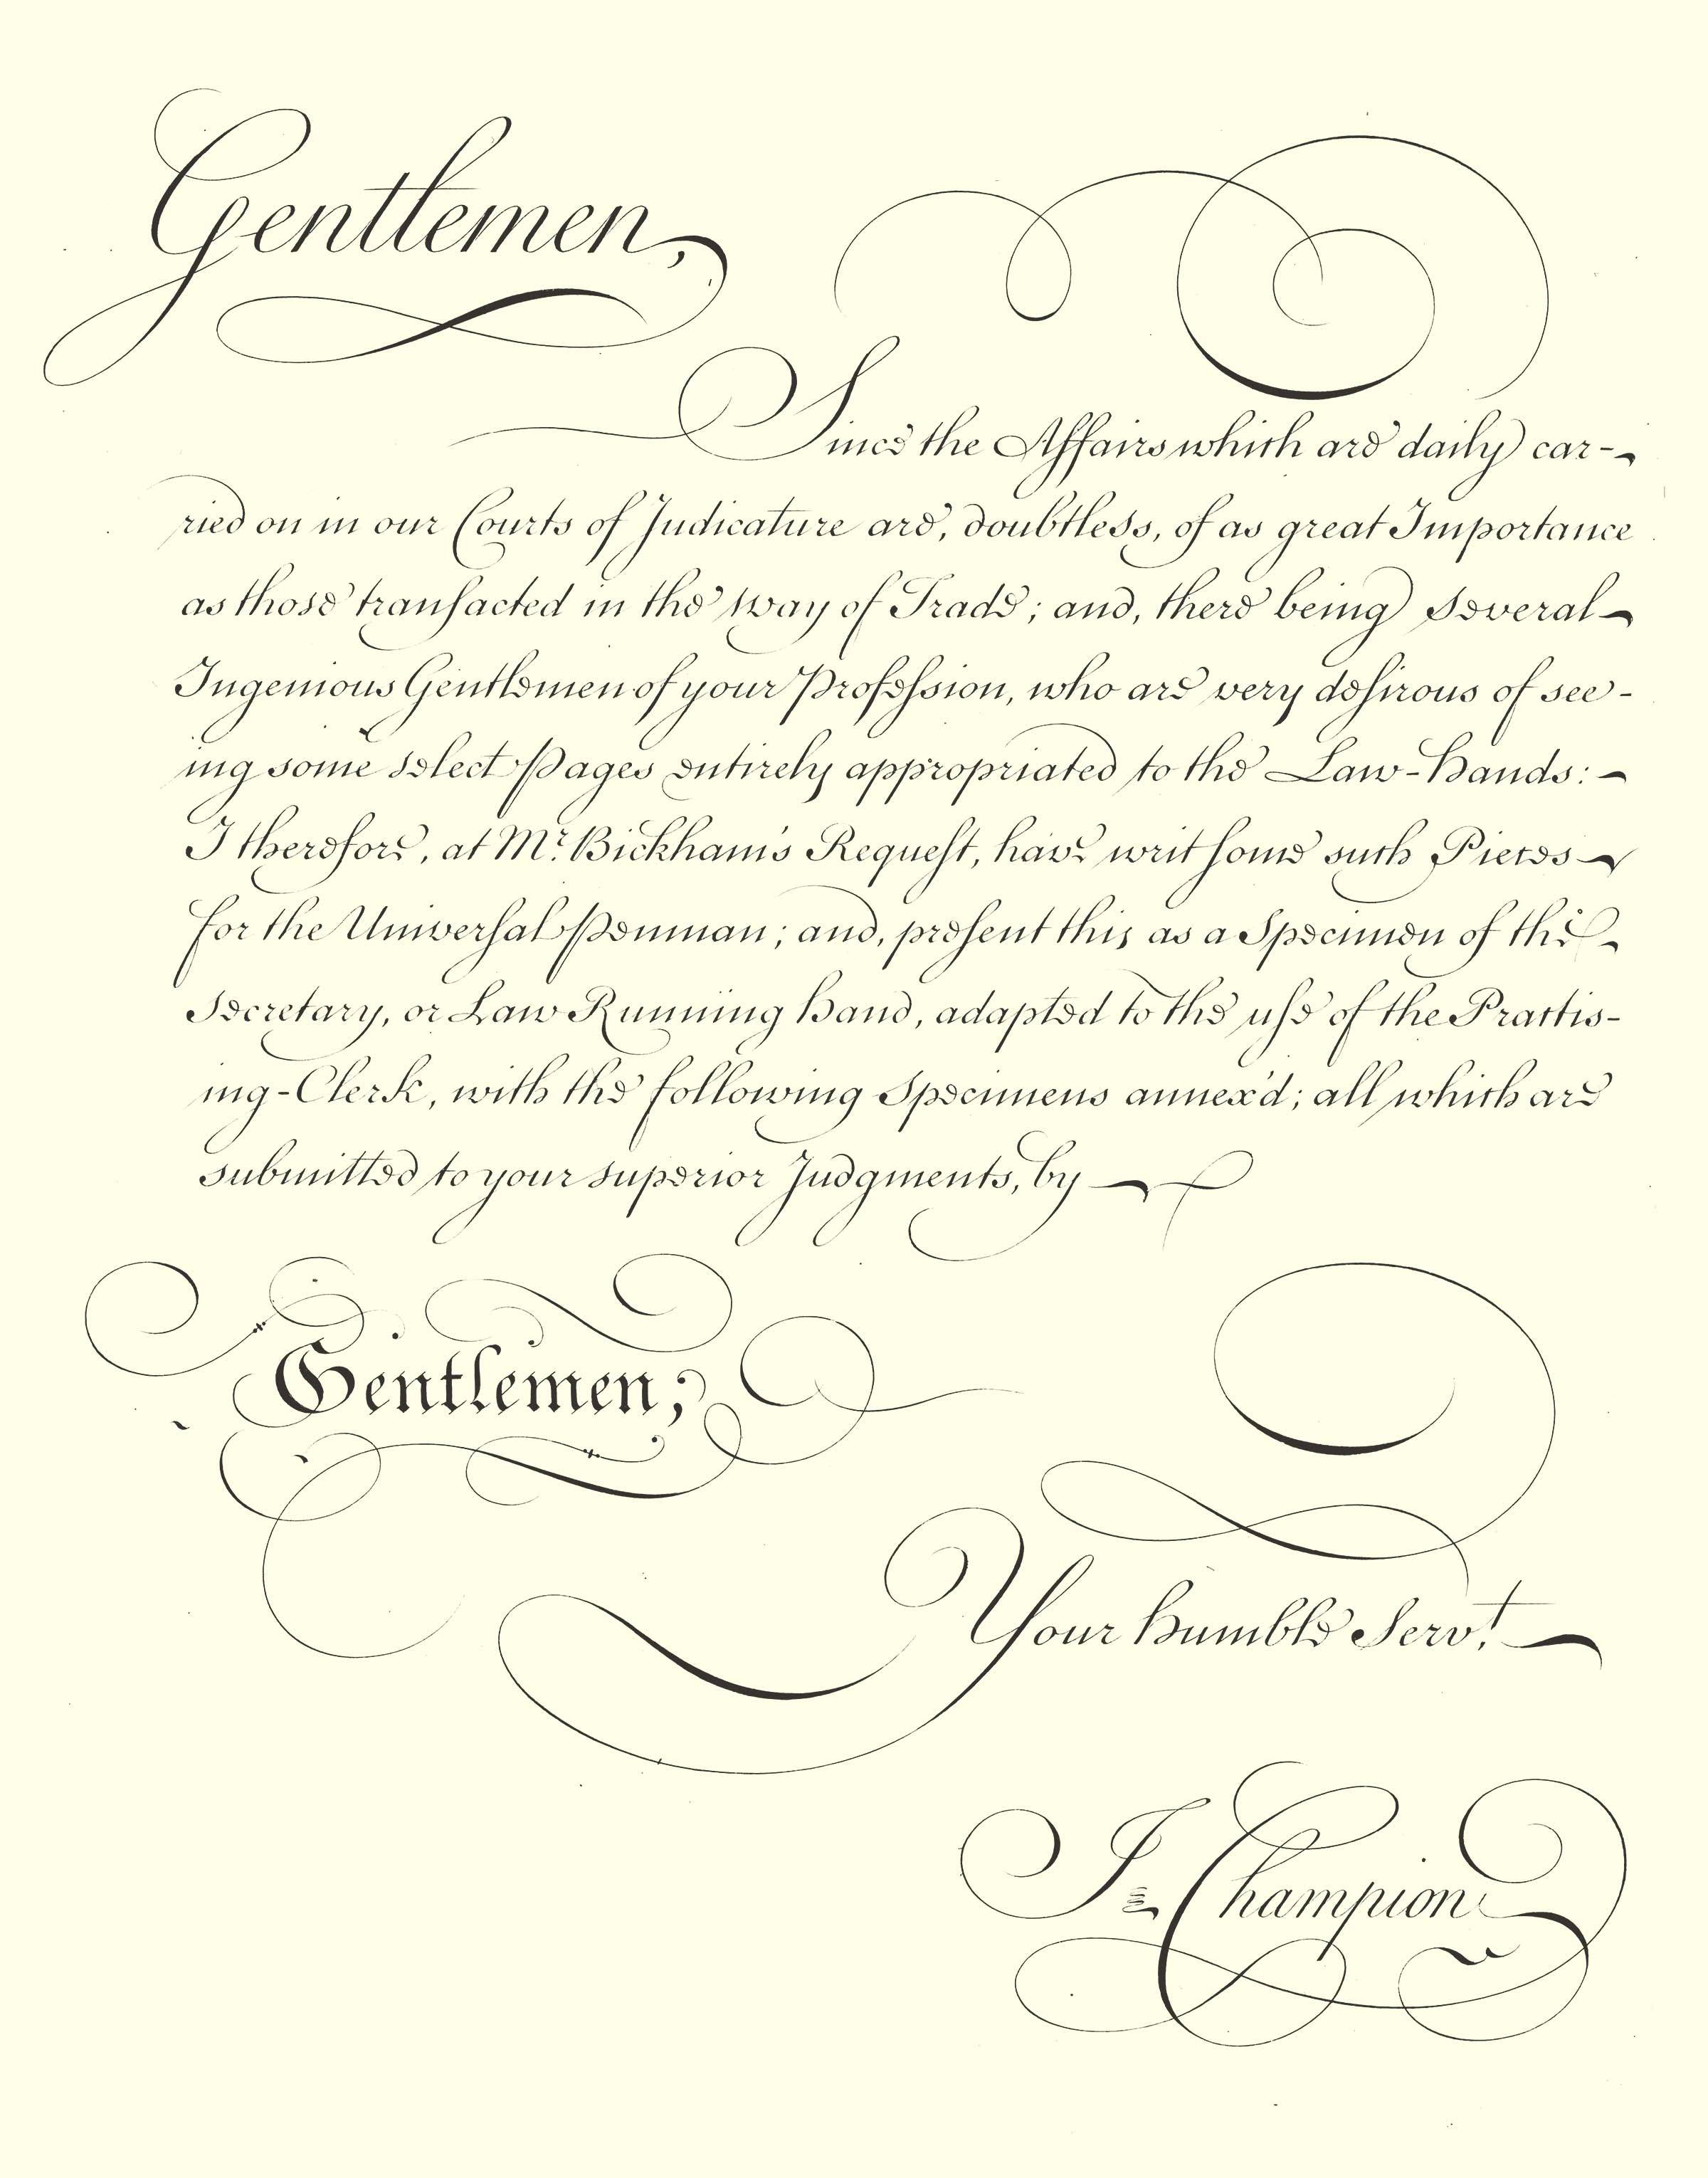 Gentlemen,
Since the Affairs which are daily car-
ried on in our Courts of Judicature are, doubtless, of as great Importance
as those transacted in the Way of Trade; and, there being several
Ingenious Gentlemen of your Profession, who are very desirous of see-
ing some select Pages entirely appropriated to the Law-Hands:
I therefore, at Mr. Bickham's Request, have writ some such Pieces
for the Universal Penman; and, present this as a Specimen of the
Secretary, or Law Running Hand, adapted to the use of the Practis-
ing-Clerk, with the following Specimens annex'd; all which are
submitted to your superior Judgments, by
Gentlemen;
Your humble Servt.
J Champion